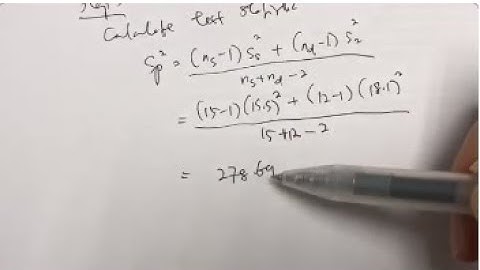 Calculate test statistic
Sp² = (ns-1) Ss² + (nd-1) S2²
ns+nd-2
= (15-1)(15.5)² + (12-1)(18.1)²
15+12-2
= 278.69